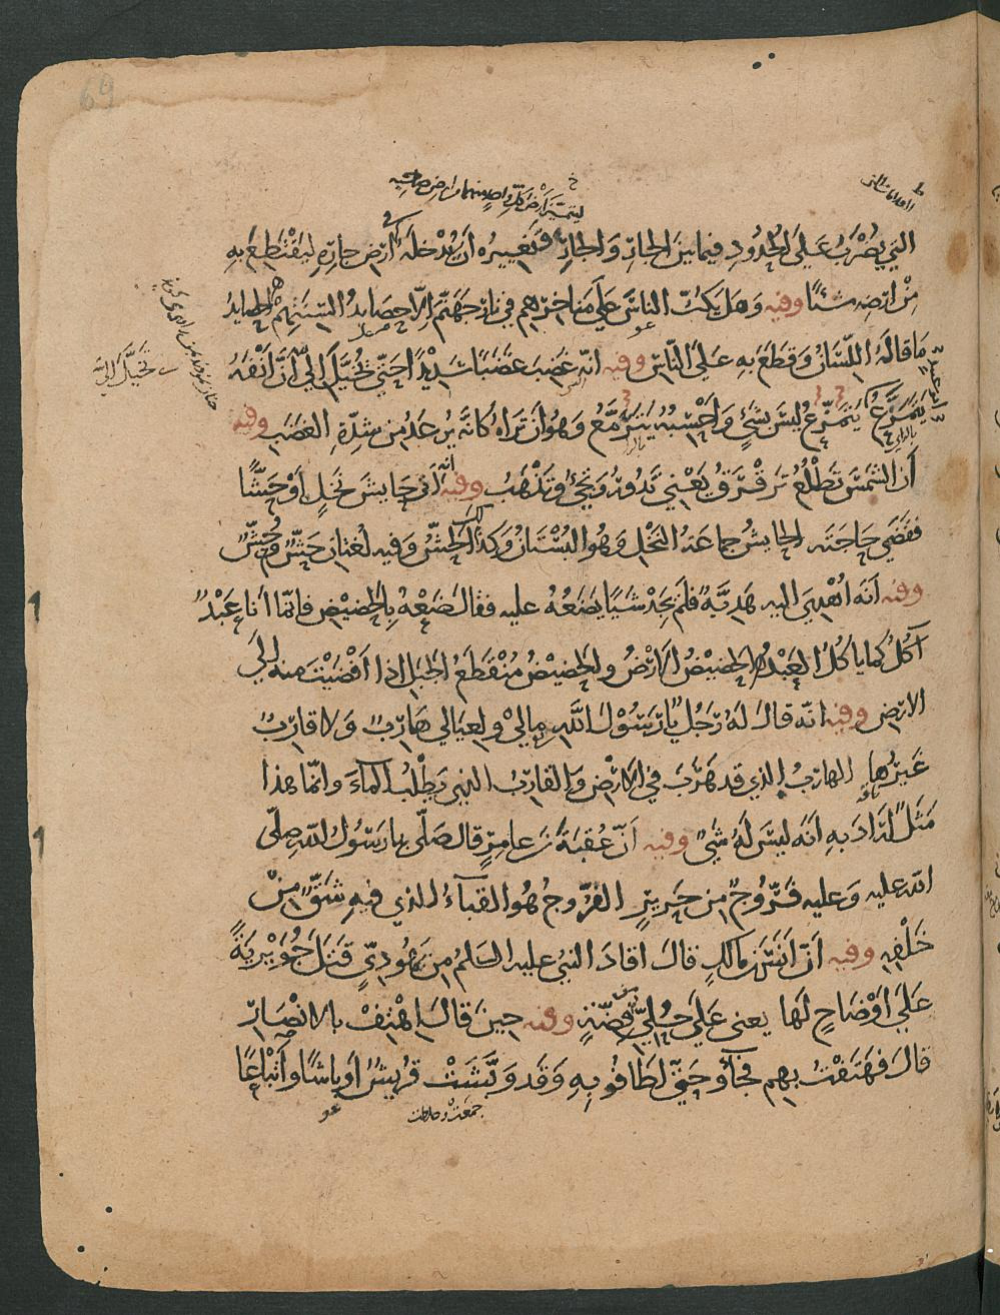 69
ليتميز
التي يُضْرَبُ عَلَى الحُدُودِ فيما بين الجارِ وَالجارِ فتغييره ان يُدْخلَه ارض جارِهِ ليَقْتَطِعَ بِهِ
مِنْ ارضِه شيئا وفيه وَهَل يَكُبّ الناسَ عَلَى مَناخرهم في نار جَهَنّم اِلّا حصايدُ السِنَتِهِمْ الحصايدُ
مَا قالَهُ اللّسَانُ وَقطَعَ بِهِ عَلَى النّاسِ وفيه انه غضِبَ غضَبًا شَدِيْدًا حَتّى تخيّلَ اِليّ اَنّ اَنْفَهُ
يَتَمَزّعُ يَتَمَزّعُ ليسَ بشَيْءٍ وَاَحْسِبُهُ يَتَرَمّعُ وَهُوَ ان تَراه كأنّه يُرعَدُ مِن شِدّةِ الغضَبِ وفيه
أن الشمسَ تَطْلُعُ تَرَقْرَقُ يَعْنِي تَدُورُ وَتَجِيُ وتَذْهَبُ وفيه انه اتى حايشَ نَخلٍ اَوْ حَشًّا
فقضَى حَاجَتَه الحايشُ جماعَةُ النَّخْلِ وَهُوَ البُسْتَانُ وَكذلك الحَشّ وَفيه لغتان حَشّ وحُشّ
وفيه اَنّه اُهْدِيَ اليه هَدِيّة فلَم يَجِدْ شَيْئا يَضَعُهُ عليه فقال ضَعْهُ بِالحَضيْضِ فانمّا أنا عَبْدٌ
آكلُ كما ياكُلُ العَبْدُ الحضيْضُ الارْضُ والحضيْضُ مُنْقَطَعُ الجَبلِ اذا اَفْضَيْتَ منه الَى
الارض وفيه انّه قالَ لَهُ رَجُلٌ يا رَسُوْلَ اللّهِ مالِيْ ولعيَالي هَارِبٌ وَلا قارِبٌ
غَيْرُها الهاربُ الذي قد هَرَبَ في الارْضِ وَالقارِبُ الذي يَطْلُبُ الماءَ وانّما هذا
مَثَلٌ اَرَادَ بِهِ اَنّه ليْسَ لَهُ شَيْ وفيه اَنّ عُقبَةَ بن عامِرٍ قال صَلّى بنا رَسُولُ اللّهِ صلّى
اللّه عليه وَعليه فَرّوُجٌ مِن حَرِيرٍ الفَرّوج هُوَ القباءُ الذي فيهِ شَقّ مِنْ
خَلْفِهِ وفيه اَنّ اَنَسَ بن مالكٍ قالَ اقادَ النبيُ عليه السّلمُ مِن يَهُودِيٍّ قتَلَ جُوَيْرِيَةً
عَلَى اَوْضَاحٍ لَها يعني عَلَى حُلِيِّ فِضّةٍ وفيه حِينَ قالَ اِهْتِفْ بالانْصَارِ
قالَ فَهَتَفْتُ بِهِم فجآؤُ حَتّى اَطَافُو بِهِ وَقَد وَبّشَتْ قُريشٌ اَوباشًا وأَتْباعًا
جمعَتْ